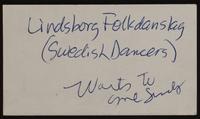 Lindsborg Folkdanslag
(Swedish Dancers)
Wants to
come